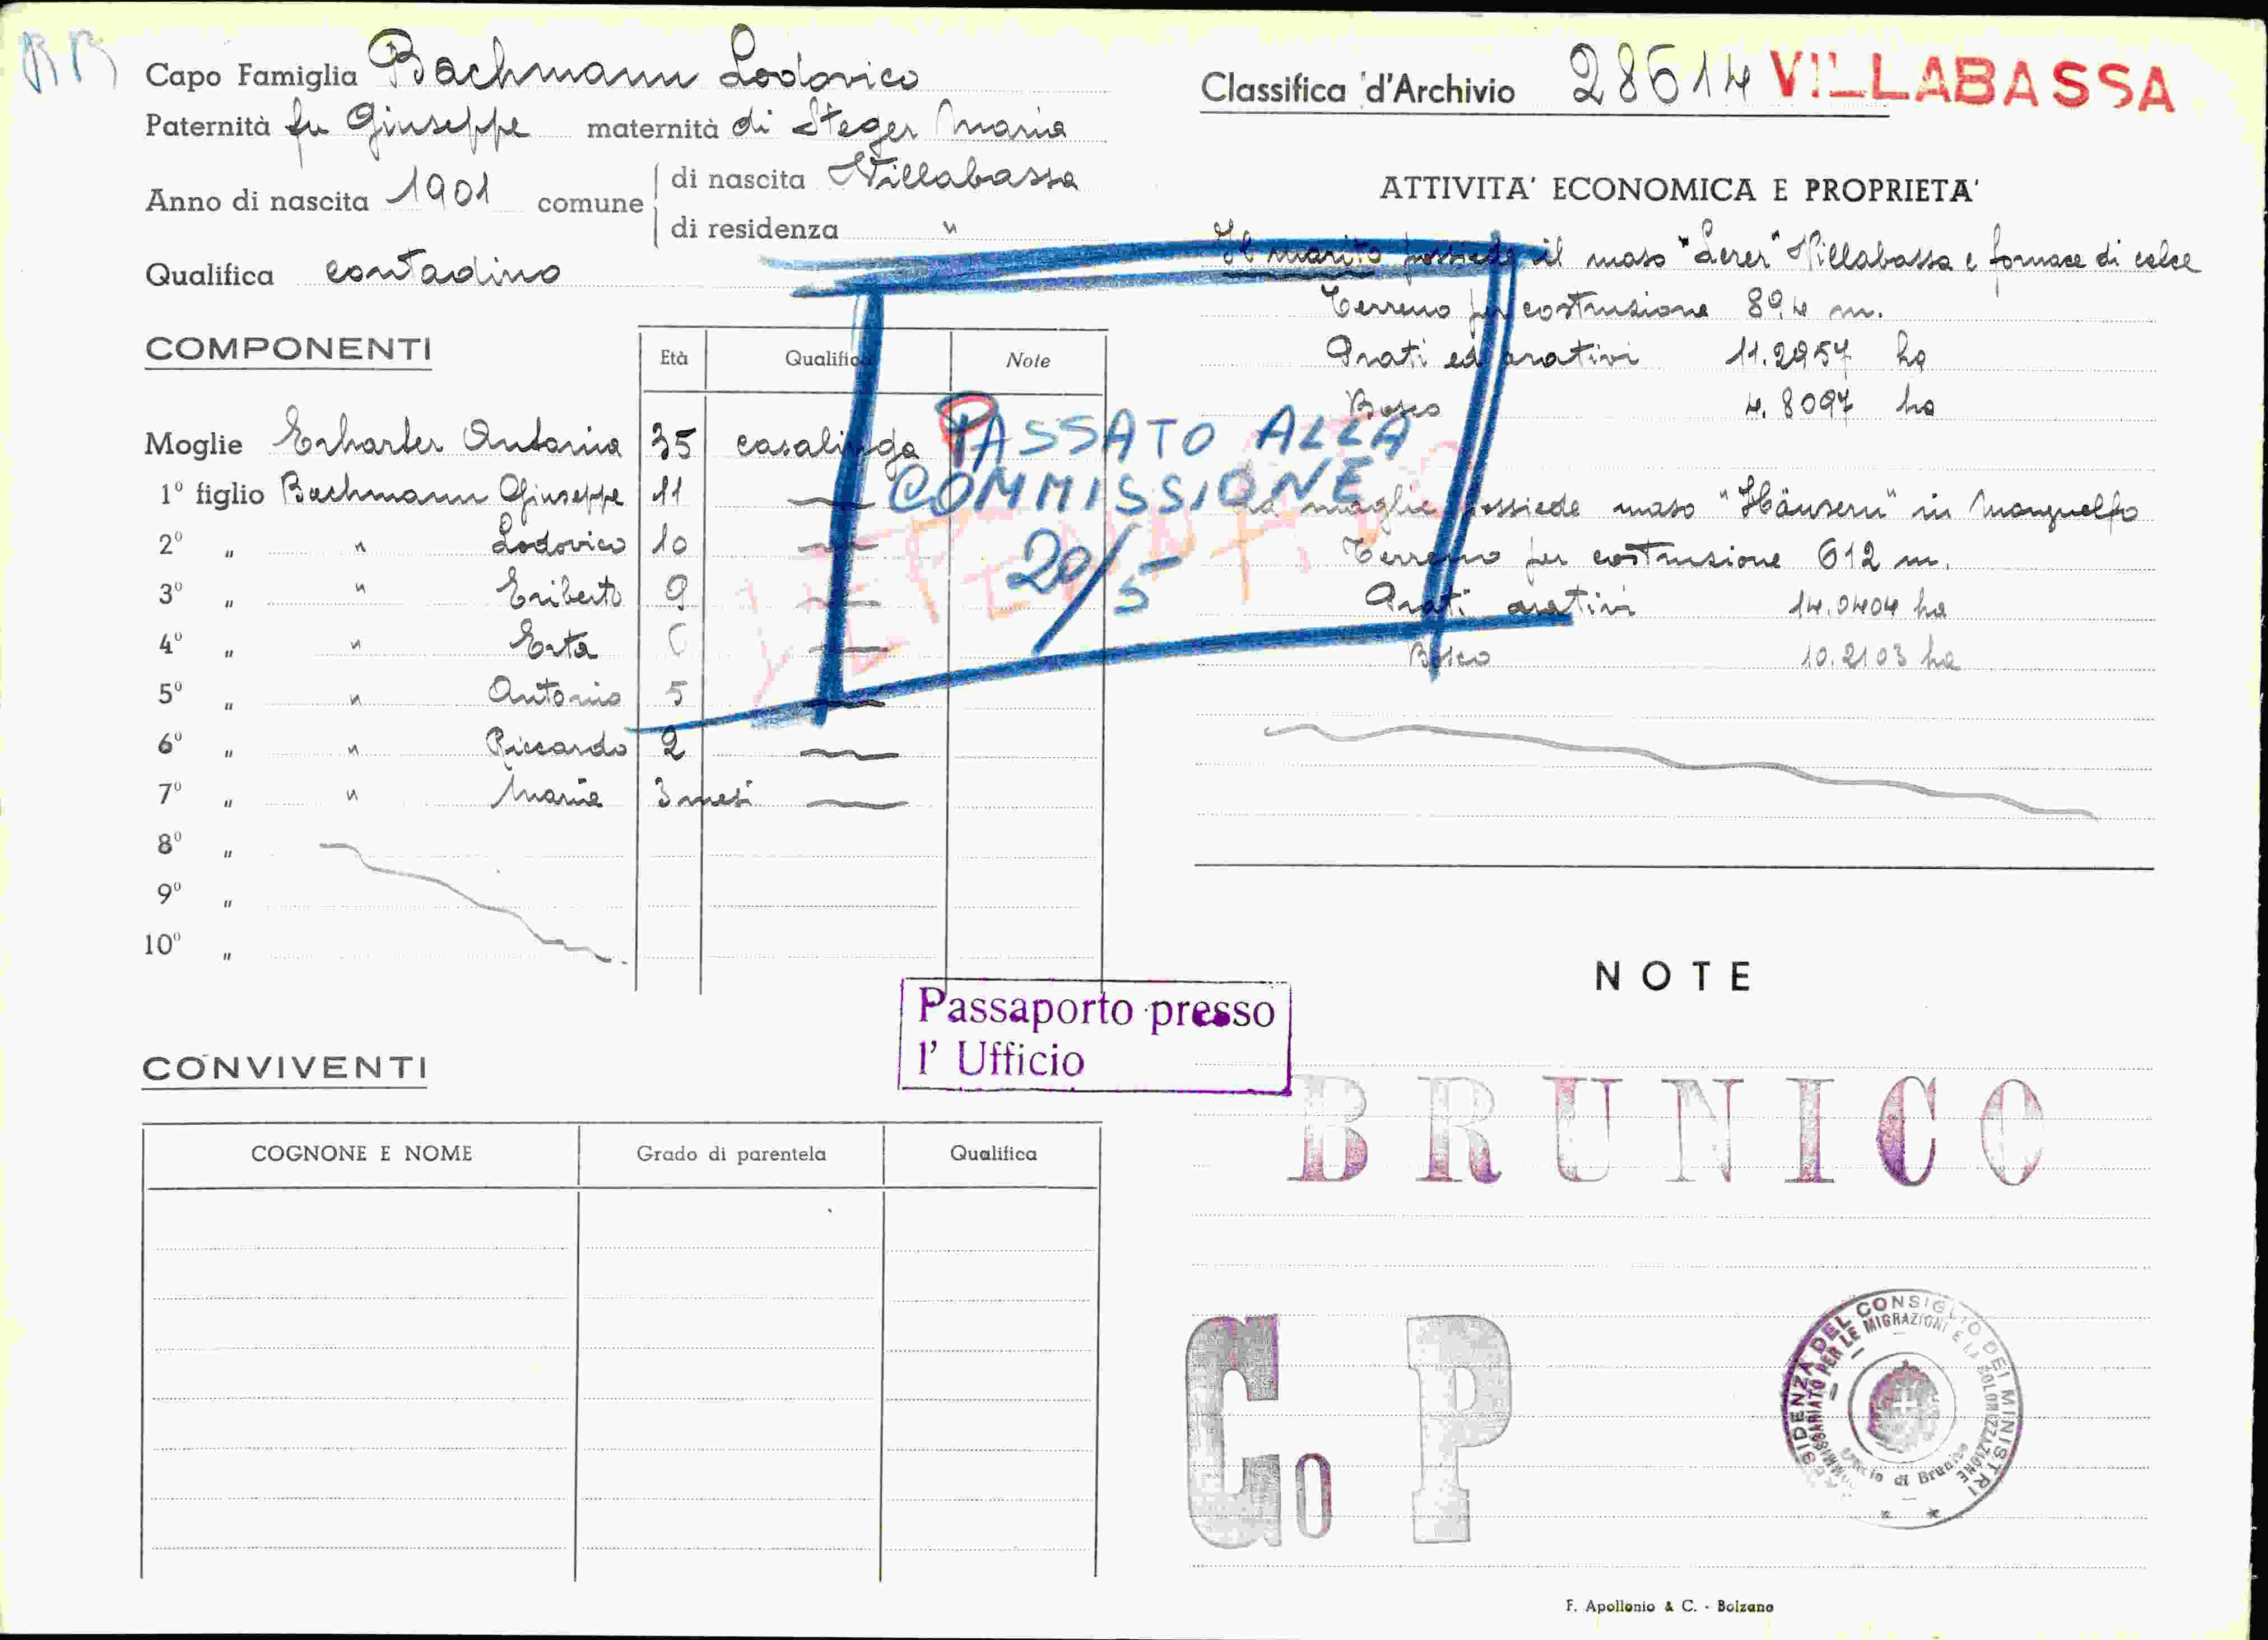 BB
Capo Famiglia Bachmann Lodovico
Classifica d'Archivio 28614 VILLABASSA
Paternità fu Giuseppe maternità di Steger Maria
Anno di nascita 1901 comune di nascita Villabassa
di residenza "
Qualifica contadino
COMPONENTI
Età Qualifica Note
Moglie Erharter Antonia 35 casalinga
1º figlio Bachmann Giuseppe 11
2º " " Lodovico 10
3º " " Eriberto 9
4º " " Erta
5º " " Antonio 5
6º " " Riccardo 2
7º " " Maria 3 mesi
8º "
9º "
10º "
PASSATO ALLA
COMMISSIONE
20/5
ATTIVITA' ECONOMICA E PROPRIETA'
Il marito possiede il maso " " Villabassa e fornace di calce
Terreno per costruzione 894 m.
Prati ed arativi 11.2957 ha
Bosco 4.8097 ha
La moglie possiede maso "Häusern" in Monguelfo
Terreno per costruzione 612 m.
Prati arativi 14.0404 ha
Bosco 10.2103 ha
Passaporto presso
l' Ufficio
CONVIVENTI
COGNONE E NOME Grado di parentela Qualifica
NOTE
BRUNICO
Co P
PRESIDENZA DEL CONSIGLIO DEI MINISTRI
COMMISSARIATO PER LE MIGRAZIONI E LA COLONIZZAZIONE
Ufficio di Brunico
F. Apollonio & C. - Bolzano